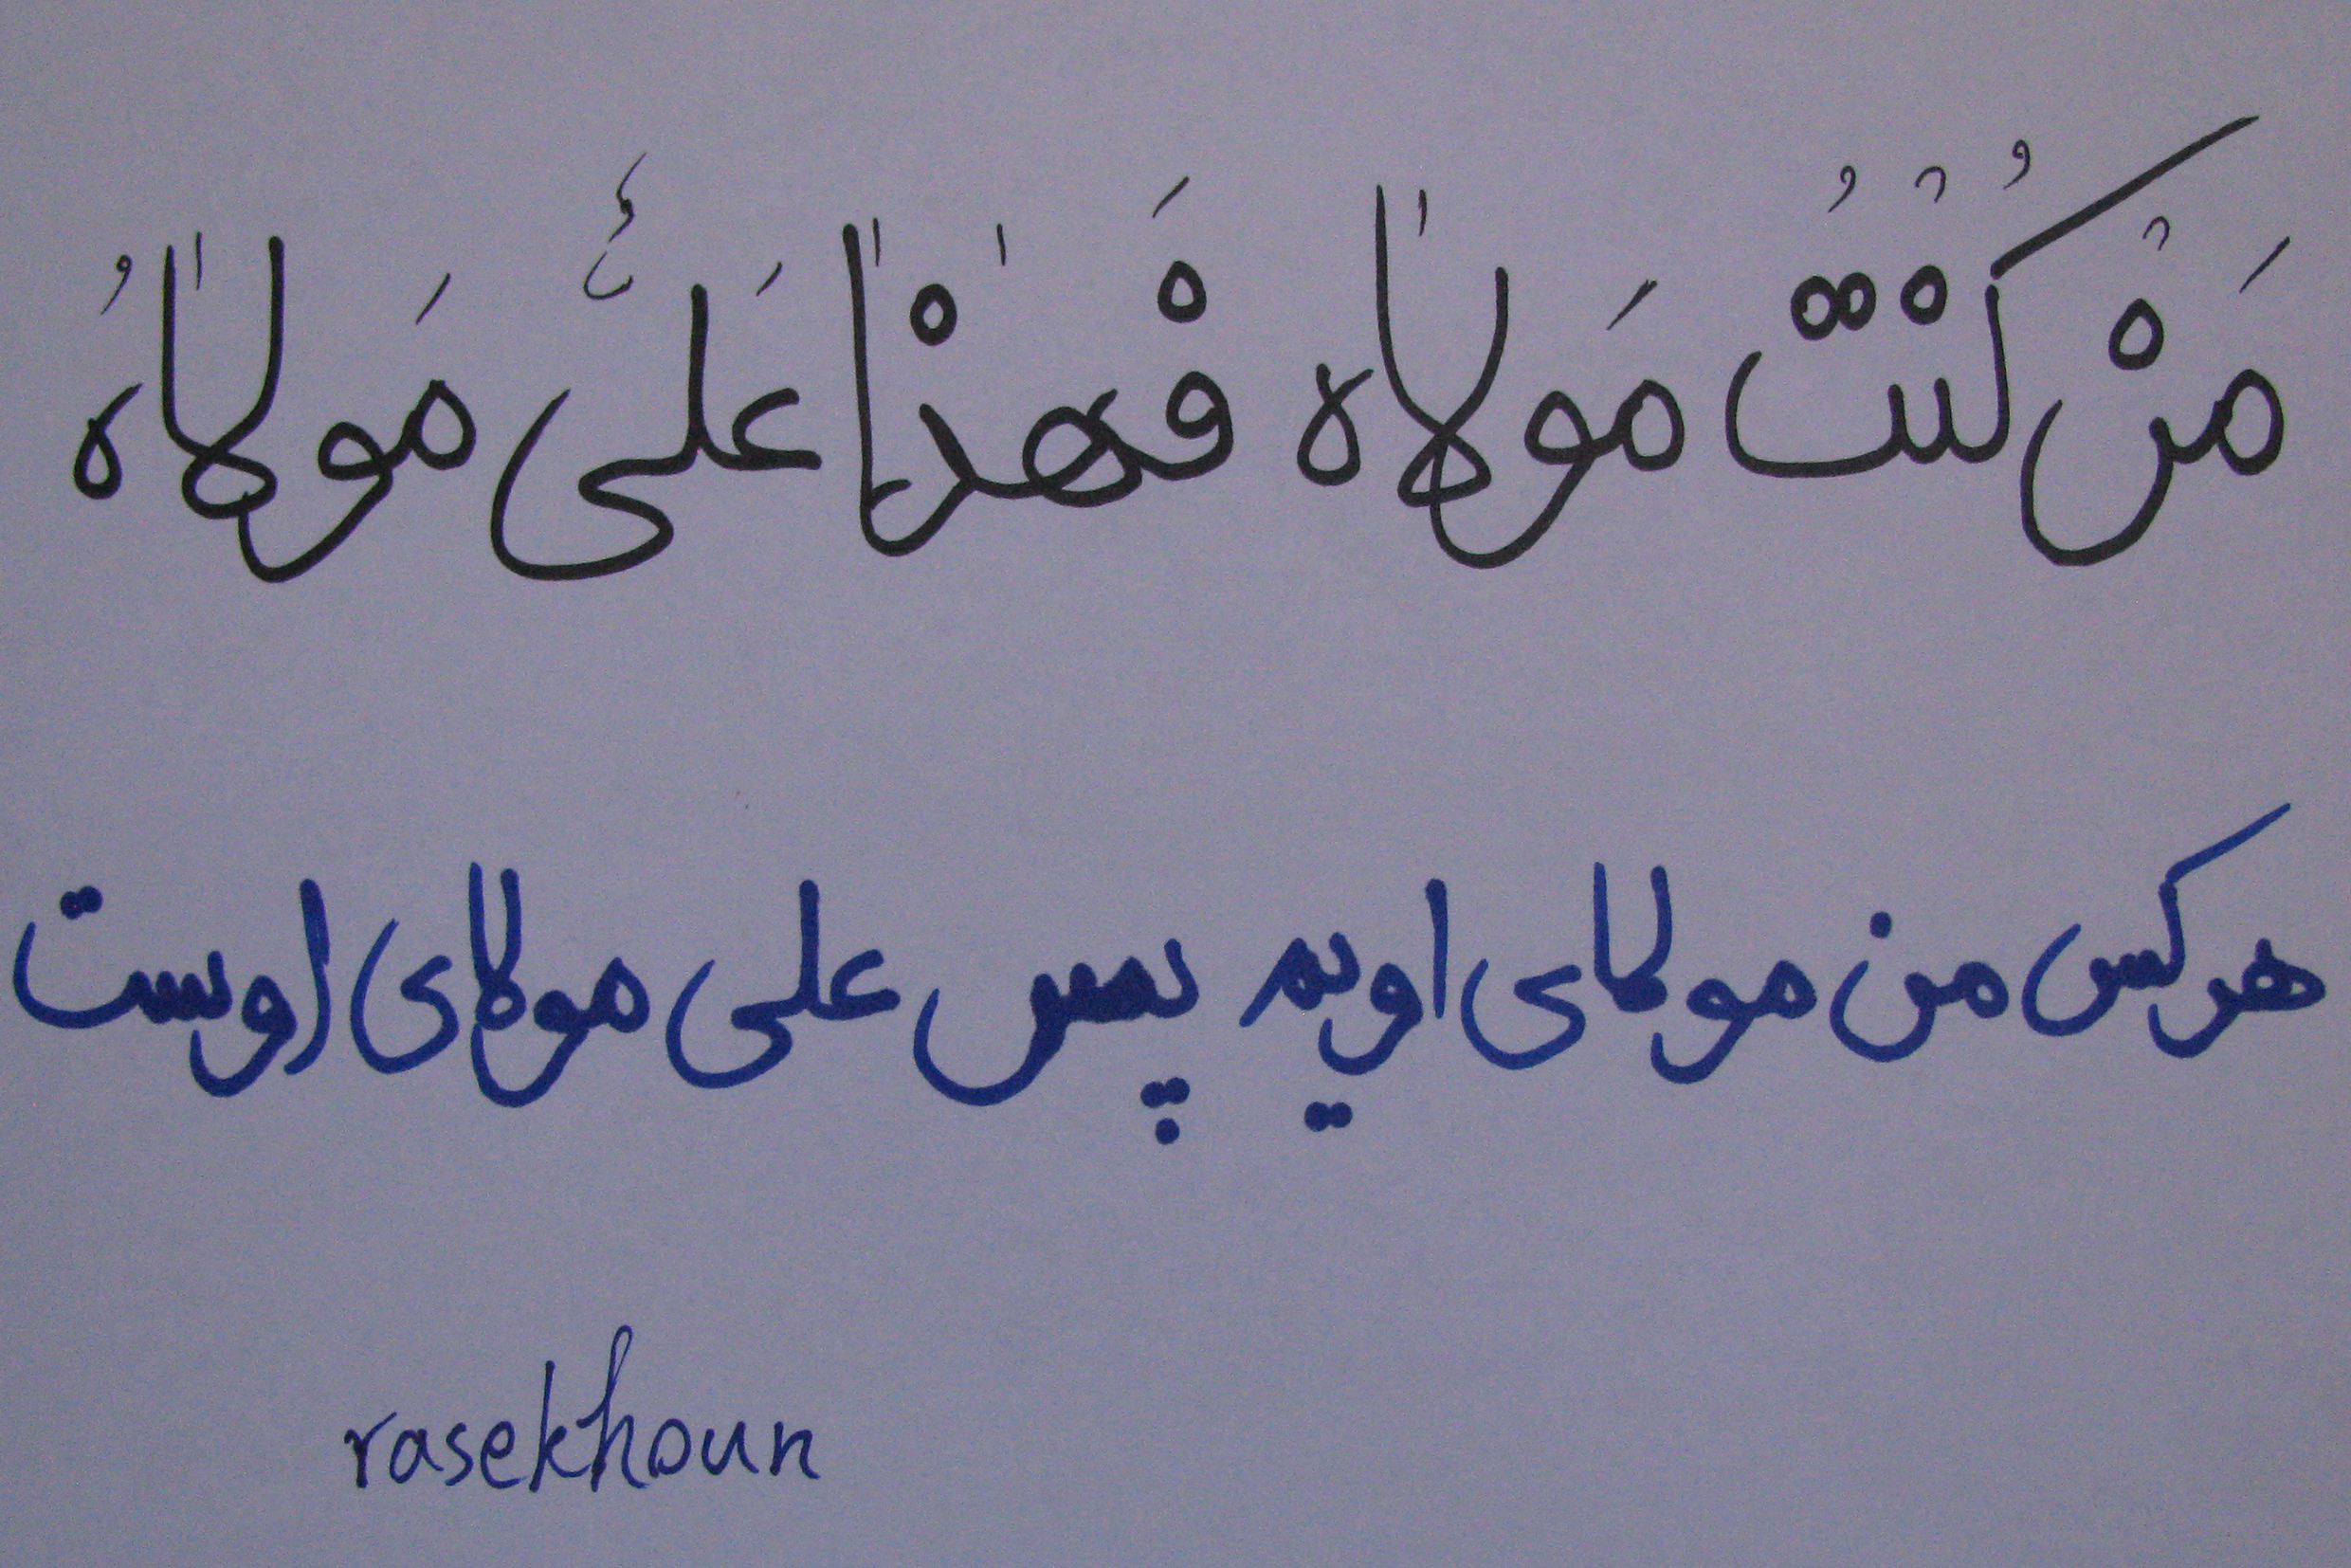 مَنْ كُنْتُ مَولاٰه فَهٰذاٰ عَلىٌّ مَولاٰهُ
هر کس من مولای اویم پس علی مولای اوست
rasekhoun